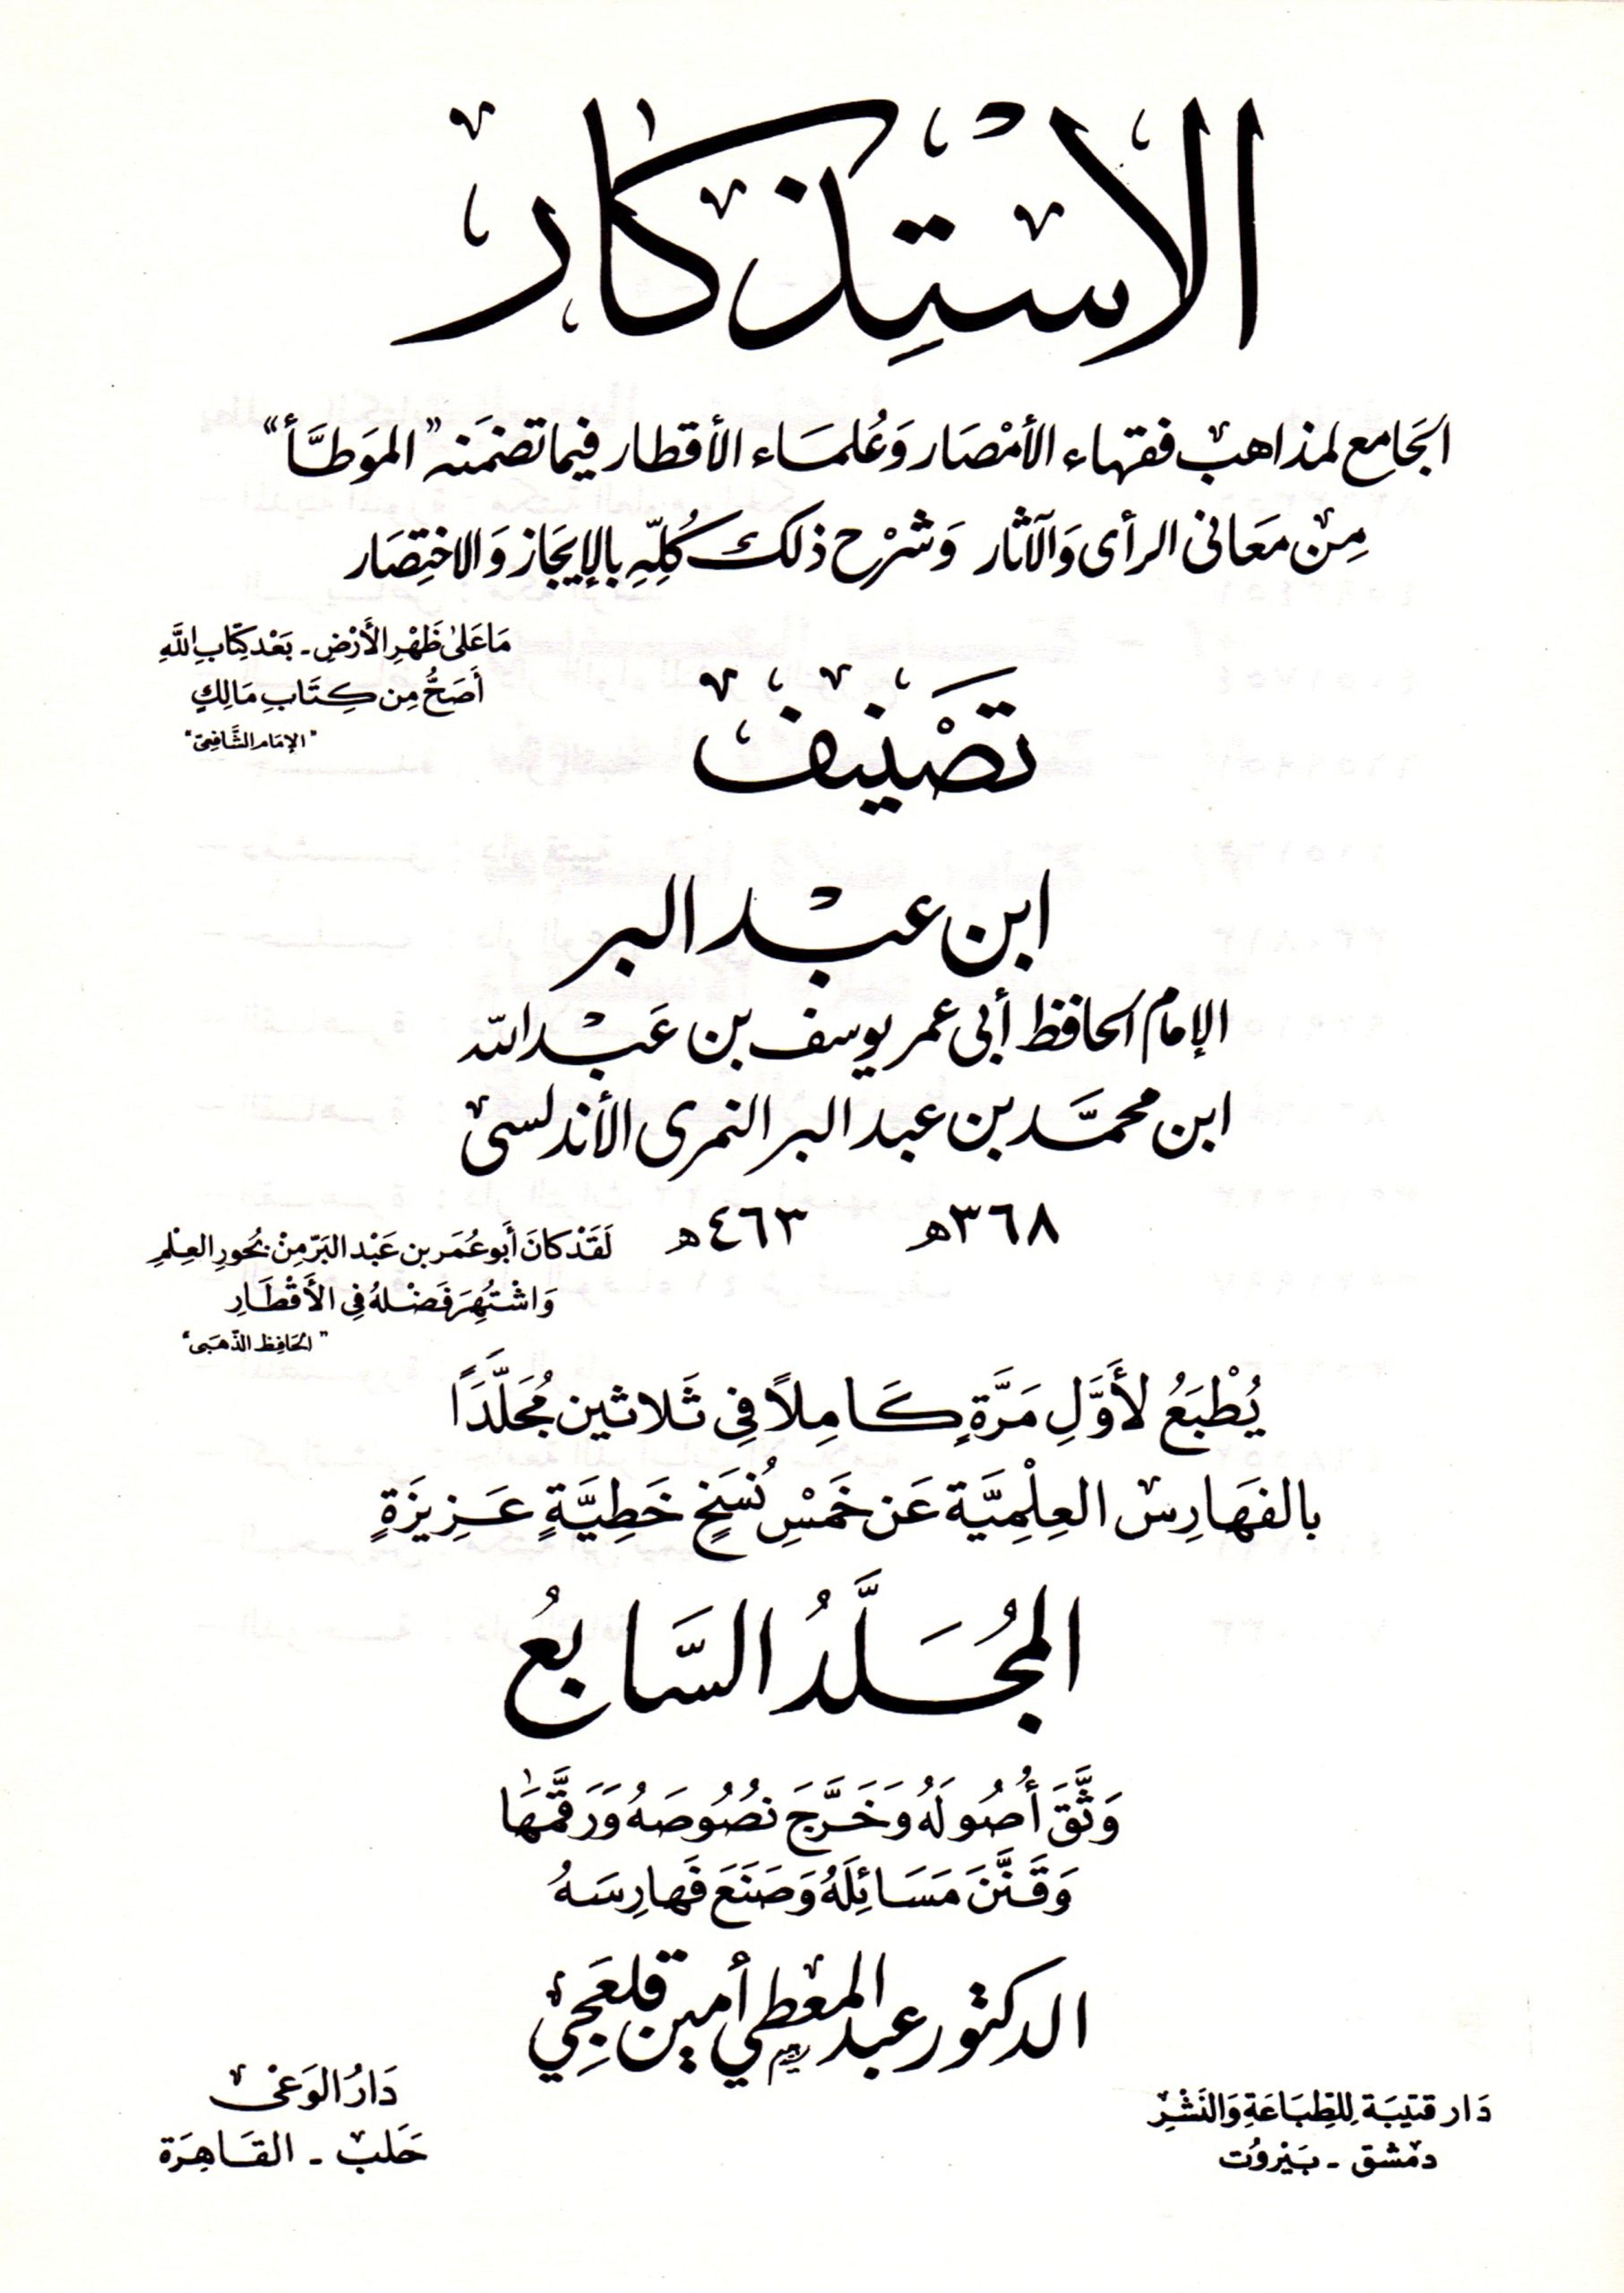 الاسْتِذكار
الجَامع لمذاهب فقهاء الأمْصَار وَعُلمَاء الأقطار فيما تضمَنه "الموَطَّأ"
مِن مَعَانى الرأى وَالآثار وَشرْح ذلك كُلِّهِ بالإيجَاز وَالاختِصَار
مَا عَلىٰ ظَهْرِ الأَرْضِ - بَعْد كِتَابِ اللَّهِ
أَصَحُّ مِن كِتَابِ مَالِكٍ
"الإمَام الشَّافِعِىّ"
تَصْنِيفُ
ابن عبْد البر
الإمام الحافظ أبى عمر يوسف بن عَبْد الله
ابن محمَّد بن عبد البر النمرى الأندلسى
٣٦٨هـ ٤٦٣هـ
لَقَدْ كانَ أَبو عُمَر بن عَبْد البَرّ مِنْ بُحورِ العِلْمِ
وَاشْتُهِرَ فَضْلهُ فِى الأَقْطَارِ
"الحَافِظ الذّهَبى"
يُطْبَعُ لأَوَّلِ مَرَّةٍ كَامِلاً فِى ثَلاثين مُجَلَّدَاً
بالفَهَارِس العِلْمِيَّة عَن خَمْسِ نُسَخٍ خَطِيَّةٍ عَزِيزَةٍ
المُجَلَّدُ السَّابعُ
وَثَّقَ أُصُولَهُ وَخَرَّجَ نصُوصَهُ وَرَقَّمَهَا
وَقَنَّنَ مَسَائِلَهُ وَصَنَعَ فَهارِسَهُ
الدكتور عبد المعطي أمين قلعَجِي
دَار قتيبَة لِلطِبَاعَةِ وَالنَشْرِ
دمشق - بَيْرُوت
دَارُ الوَعْى
حَلب - القَاهِرَة